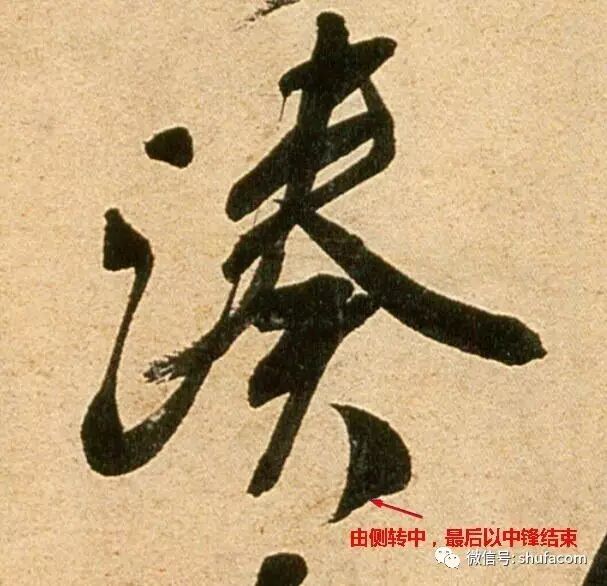 湊
由侧转中，最后以中锋结束
微信号: shufacom